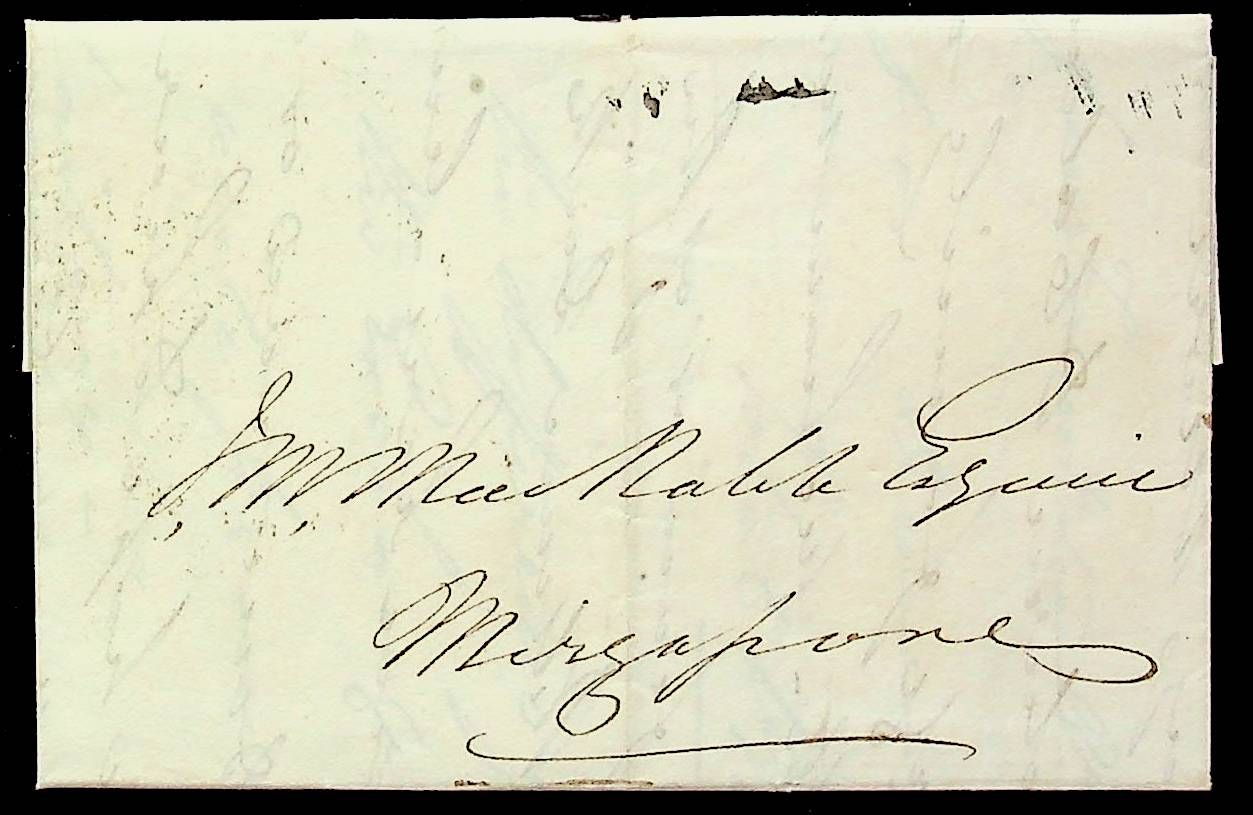 J. W. MacNabb Esquire
Mirzapore